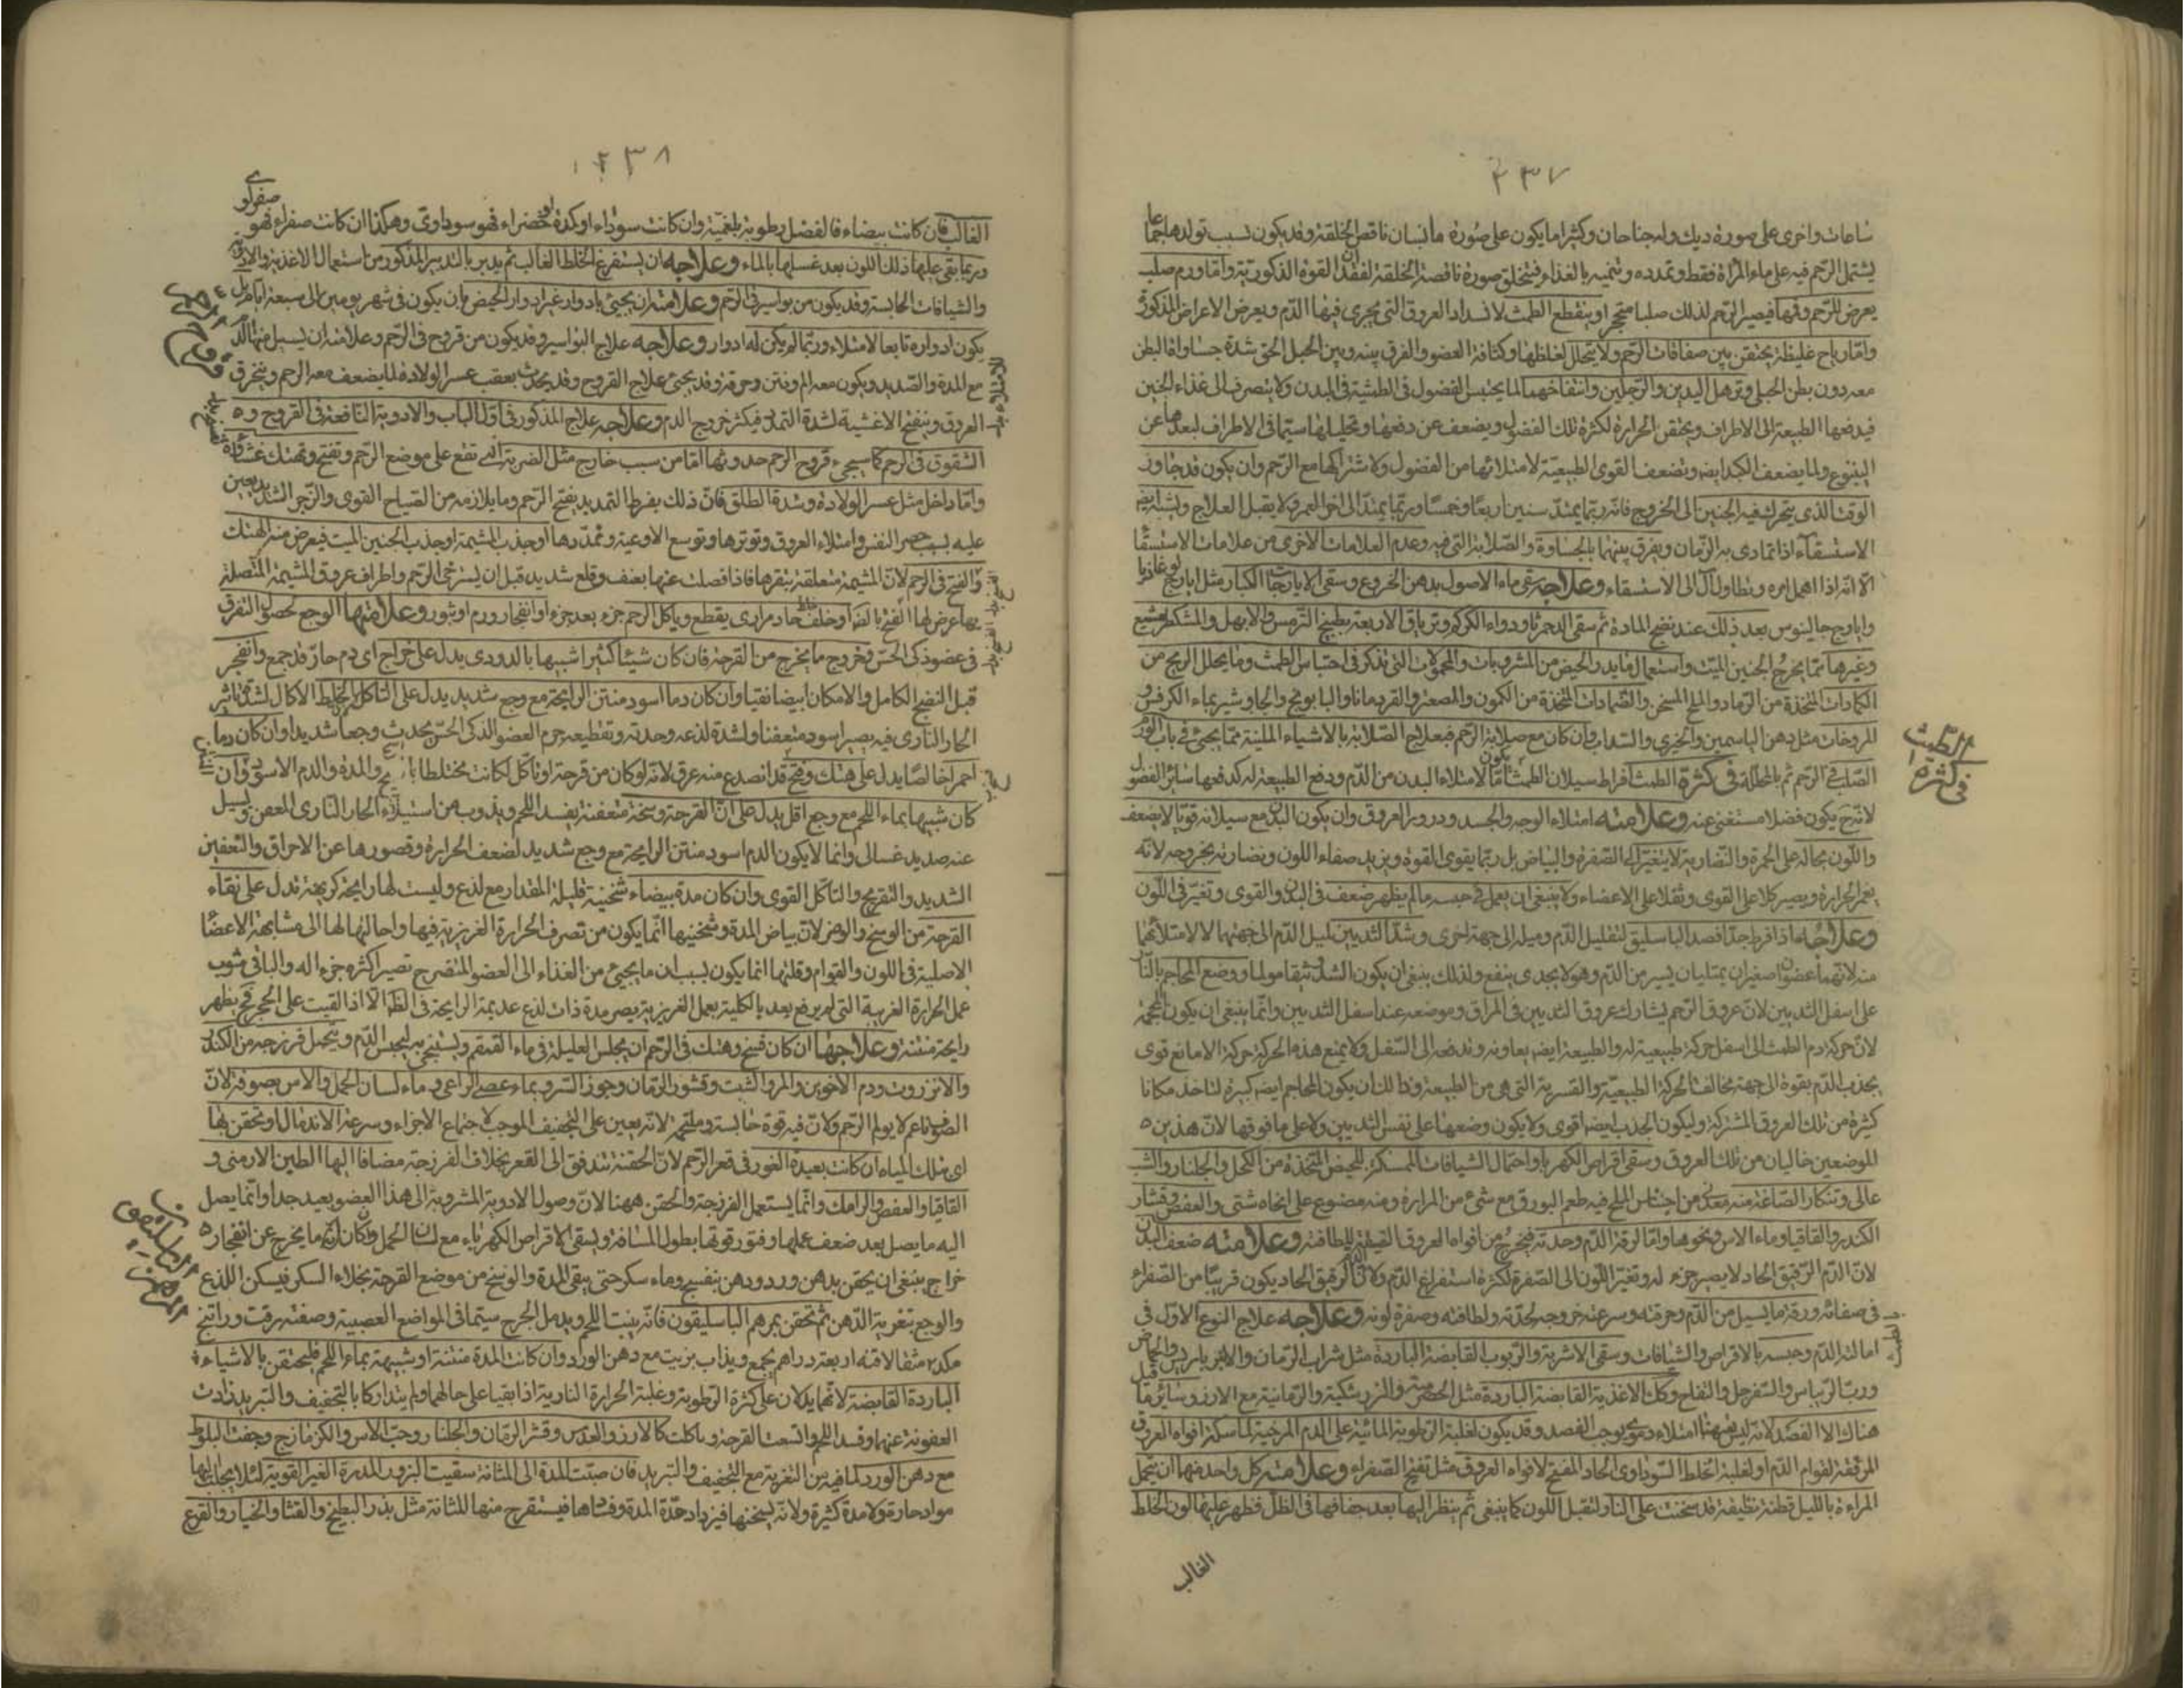 ٣٣٧
ساعات واخرى على صورة ديك وله جناحان وكثيرا ما يكون على صورة ما انسان ناقص الخلقة وقد يكون بسبب تولدها جماعا
يشتمل الرحم فيه على ماء المرأة فقط وتمدده وتنميه بالغذاء فيتخلق صورة ناقصة الخلقة لفقدان القوة الذكورية واما ورم صلب
يعرض للرحم وفمها فيصير الرحم لذلك صلبا متحجرا وينقطع الطمث لانسداد العروق التى يجرى فيها الدم ويعرض الاعراض المذكورة
واما رياح غليظة يحتقن بين صفاقات الرحم ولا يتحلل لغلظها وكثافة العضو والفرق بينه وبين الحبل الحق شدة جساوة البطن
معه دون بطن الحبلى وترهل اليدين والرجلين وانتفاخهما لما يحتبس الفضول الطمثية فى البدن ولا يتصرف الى غذاء الجنين
فيدفعها الطبيعة الى الاطراف ويحتقن الحرارة لكثرة تلك الفضول ويضعف عن دفعها وتحليلها سيما فى الاطراف لبعدها عن
الينبوع ولما يضعف الكبد ايضا وتضعف القوى الطبيعية لامتلائها من الفضول ولاشتراكها مع الرحم وان يكون قد جاوز
الوقت الذى يتحرك فيه الجنين الى الخروج فانه ربما يمتد سنين اربعا وخمسا وربما يمتد الى اخر العمر ولا يقبل العلاج ويشبه ايضا
الاستسقاء اذا تمادى به الزمان ويفرق بينهما بالجساوة والصلابة التى فيه وعدم العلامات الاخرى من علامات الاستسقاء
الا انه اذا اهمل امره وتطاول آل الى الاستسقاء وعلاجه سقى ماء الاصول بدهن الخروع وسقى الايارجات الكبار مثل ايارج لوغاذيا
وايارج جالينوس بعد ذلك عند نضج المادة ثم سقى الدحمرثا ودواء الكركم وترياق الاربعة بطبيخ الترمس والابهل والمشكطرامشيع
وغيرها مما يخرج الجنين الميت واستعمال ما يدر الحيض من المشروبات والحمولات التى نذكر فى احتباس الطمث وما يحلل الريح من
الكمادات المتخذة من الرماد والملح المسخن والضمادات المتخذة من الكمون والصعتر والقردمانا والبابونج والجاوشير بماء الكرفس
المروخات مثل دهن الياسمين والخيرى والسذاب وان كان مع صلابة الرحم فبعلاج الصلابة بالاشياء الملينة مما يجئ فى باب الورم
الصلب فى الرحم ثم بالمحللة فى كثرة الطمث افراط سيلان الطمث اما يكون لامتلاء البدن من الدم ودفع الطبيعة له كدفعها سائر الفضول
لانه ح يكون فضلا مستغنى عنه وعلامته امتلاء الوجه والجسد ودرور العروق وان يكون البدن مع سيلانه قويا لا يضعف
واللون بحاله على الحمرة والنضارة لا يتغير الى الصفرة والبياض بل ربما يقوى القوة ويزيد صفاء اللون ونضارته بخروجه لانه
يغمر الحرارة ويصير كلا على القوى وثقلا على الاعضاء ولا ينبغى ان يعمل فى حبسه ما لم يظهر ضعف فى البدن والقوى وتغير فى اللون
وعلاجه اذا افرط جدا فصد الباسليق لتقليل الدم وميله الى جهة اخرى وشد الثديين لميل الدم الى جهتهما لا لامتلائهما
منه لانهما عضوان صغيران يمتليان بيسير من الدم وهو لا يجدى بنفع ولذلك ينبغى ان يكون الشد شدا مولما ووضع المحاجم بالنار
على اسفل الثديين لان عروق الرحم يشارك عروق الثديين فى المراق وموضعه عند اسفل الثديين وانما ينبغى ان يكون المحجمة
لان حركة دم الطمث الى اسفل حركة طبيعية له والطبيعة ايضا يعاونه وتدفعه الى السفل ولا يمنع هذه الحركة حركة الا مانع قوى
يجذب الدم بقوة الى جهة مخالفة لحركة الطبيعية والقسرية التى هى من الطبيعة ولذلك ان يكون المحاجم ايضا كبيرة لتاخذ مكانا
كثيرة من تلك العروق المشتركة وليكون الجذب ايضا اقوى ولا يكون وضعها على نفس الثديين ولا على ما فوقها لان هذين
الموضعين خاليان من تلك العروق وسقى اقراص الكهربا واحتمال الشيافات الممسكة للحيض المتخذة من الكحل والجلنار والشب
عالى وتنكار الصاغة منه معدنى من اجناس الملح فيه طعم البورق مع شئ من المرارة ومنه مصنوع على انحاء شتى والعفص وقشار
الكندر والقاقيا وماء الاس ونحوها واما لرقة الدم وحدته فيخرج من افواه العروق الضيقة للطافته وعلامته ضعف البدن
لان الدم الرقيق الحاد لا يصير جزء له وتغير اللون الى الصفرة لكثرة استفراغ الدم ولان الدم الرقيق الحاد يكون قريبا من الصفراء
فى صفاته ورقة ما يسيل من الدم وحرقته وسرعة خروجه لحدته ولطافته وصفرة لونه وعلاجه علاج النوع الاول فى
امالة الدم وحبسه بالاقراص والشيافات وسقى الاشربة والربوب القابضة الباردة مثل شراب الرمان والانبرباريس والحماض
ورب الريباس والسفرجل والتفاح وكل الاغذية القابضة الباردة مثل الحصرمية والزرشكية والرمانية مع الارز وسائر ما قيل
هناك الا الفصد لانه ليس ههنا امتلاء دموى يوجب الفصد وقد يكون لغلبة الرطوبة المائية على الدم المرخية لماسكة افواه العروق
المرققة لقوام الدم او لغلبة الخلط السوداوى الحاد المفتح لافواه العروق مثل تفتيح الصفراء وعلامة كل واحد منها ان يتحمل
المراءة بالليل قطنة نظيفة قد سخنت على النار لتقبل اللون كما ينبغى ثم ينظر اليها بعد جفافها فى الظل فظهر عليها لون الخلط
الغالب
فى كثرة
الطمث
٣٣٨
الغالب فان كانت بيضاء فالفضل رطوبة بلغمية وان كانت سوداء او كدة او خضراء فهو سوداوى وهكذا ان كانت صفراء فهو
صفراوى
وربما بقى عليها ذلك اللون بعد غسلها بالماء وعلاجه ان يستفرغ الخلط الغالب ثم يدبر بالتدبير المذكور من استعمال الاغذية والادوية
والشيافات الحابسة وقد يكون من بواسير فى الرحم وعلامته ان يجئ بادوار غير ادوار الحيض بان يكون فى شهر يومين الى سبعة ايام بل
يكون ادواره تابعا لامتلاء وربما لم يكن له ادوار وعلاجه علاج البواسير وقد يكون من قروح فى الرحم وعلامته ان يسيل منها الدم
مع المدة والصديد ويكون معه الم ونتن وحرقة وقد يجئ علاج القروح وقد يحدث بعقب عسر الولادة لما يضعف معه الرحم وينخرق
العروق وينفتح الاغشية لشدة التمدد فيكثر خروج الدم وعلاجه علاج المذكور فى اول الباب والادوية النافعة فى القروح و
الشقوق فى الرحم كما سيجئ قروح الرحم حدوثها اما من سبب خارج مثل الضربة التى تقع على موضع الرحم وتفتح وتهتك غشاوة
واما داخل مثل عسر الولادة وشدة الطلق فان ذلك بفرط التمديد يفتح الرحم وما يلازمه من الصياح القوى والزحر الشديد يعين
عليه بسبب حصر النفس وامتلاء العروق وتوترها وتوسع الاوعية وتمددها او جذب المشيمة او جذب الجنين الميت فيعرض منه الهتك
والفتح فى الرحم لان المشيمة متعلقة بنقرها فاذا فصلت عنها بعنف وقلع شديد قبل ان يسترخى الرحم واطراف عروق المشيمة المتصلة
بها عرض لها الفتح بالضرورة او خلط حاد مرارى يقطع وياكل الرحم جزء بعد جزء او انفجار ورم او بثور وعلامتها الوجع لحصول التفرق
فى عضو ذكى الحس وخروج ما يخرج من القرحة فان كان شيئا كثيرا شبيها بالدردى يدل على خراج اى دم حار قد جمع وانفجر
قبل النضج الكامل والا مكان ابيضا نقيا وان كان دما اسود منتن الرايحة مع وجع شديد يدل على التاكل والخلط الاكال لشدة تاثير
الحار النارى فيه يصير اسود متعفنا ولشدة لذعه وحدته وتقطيعه جرم العضو الذكى الحس يحدث وجعا شديدا وان كان دما
احمر خالصا يدل على هتك وفتح قد انصدع منه عرق لانه لو كان من قرحة او تاكل لكانت مختلطا بالقيح والمدة والدم الاسود وان
كان شبيها بماء اللحم مع وجع اقل يدل على ان القرحة وسخة متعفنة يفسد اللحم ويذوب من استيلاء الحار النارى العفن ويسيل
عنه صديد غسالى وانما لا يكون الدم اسود منتن الرايحة مع وجع شديد لضعف الحرارة وقصورها عن الاحراق والتعفين
الشديد والتقريح والتاكل القوى وان كان مدة بيضاء ثخينة قليلة المقدار مع لذع وليست لها رايحة كريهة تدل على نقاء
القرحة من الوسخ والوضر لان بياض المدة وثخنيها انما يكون من تصرف الحرارة الغريزية فيها واحالتها لها الى مشابهة الاعضاء
الاصلية فى اللون والقوام وقلتها انما يكون بسبب ان ما يجئ من الغذاء الى العضو المتقرح تصير اكثره جزء اله والباقى مشوب
عمل الحرارة الغريبة التى لم يرفع بعد بالكلية بعمل الغريزية يصير مدة ذات لذع عديمة الرايحة فى الظاهر الا اذا القيت على الجمر فح يظهر
رايحة منتنة وعلاجها ان كان فسخ وهتك فى الرحم ان يجلس العليلة فى ماء القمقم ويستنجى به ليحبس الدم ويتحمل فرزجة من الكندر
والانزروت ودم الاخوين والمر والشب وقشور الرمان وجوز السرو بماء عصى الراعى وماء لسان الحمل والاس بصوفة لان
الصوف ناعم لا يولم الرحم ولان فيه قوة حابسة وملتحمة لانه يعين على التجفيف الموجب لاجتماع الاجزاء وسرعة الاندمال او تحقن بها
اى بتلك المياه ان كانت بعيدة الغور فى قعر الرحم لان الحقنة تندفق الى القعر بخلاف الفرزجة مضافا اليها الطين الارمنى و
القاقيا والعفص والرامك وانما يستعمل الفرزجة والحقن ههنا لان وصول الادوية المشروبة الى هذا العضو بعيد جدا وانما يصل
اليه ما يصل بعد ضعف عملها وفتور قوتها بطول المسافة ويسقى الاقراص الكهرباء مع لسان الحمل وان كان ما يخرج عن انفجار
خراج ينبغى ان يحقن بدهن ورد ودهن بنفسج وماء سكر حتى يبقى المدة والوسخ من موضع القرحة بجلاء السكر فيسكن اللذع
والوجع بتغرية الدهن ثم تحقن بمرهم الباسليقون فانه ينبت اللحم ويدمل الجرح سيما فى المواضع العصبية وصفته زفت وراتنج
مكد ٣ مثقالا قنه اربعة دراهم يجمع ويذاب بزيت مع دهن الورد وان كانت المدة منتنة او شبيهة بماء اللحم فليحتقن بالاشياء
الباردة القابضة لانهما يدلان على كثرة الرطوبة وغلبة الحرارة النارية اذا بقيا على حالهما ولم يتداركا بالتجفيف والتبريد زادت
العفونة عنهما وفسد اللحم واتسعت القرحة وتاكلت كالارز والعدس وقشر الرمان والجلنار وحب الاس والكزمازج وجفت البلوط
مع دهن الورد لما فيه من التغرية مع التجفيف والتبريد فان صبت المدة الى المثانة سقيت البزور المدرة الغير القوية لئلا يجلب اليها
مواد حارة ولا مدة كثيرة ولانه يسخنها فيزداد حدة المدة وفسادها فيستقرح منها للثانة مثل بذر البطيخ والقثا والخيار والقرع
قروح الرحم